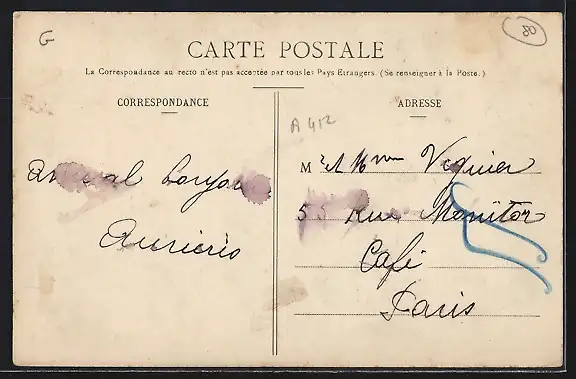 G
80
CARTE POSTALE
La Correspondance au recto n'est pas acceptée par tous les Pays Etrangers. (Se renseigner à la Poste.)
CORRESPONDANCE
ADRESSE
A 412
M et Mme Viguier
Rue Monitor
Café
Paris